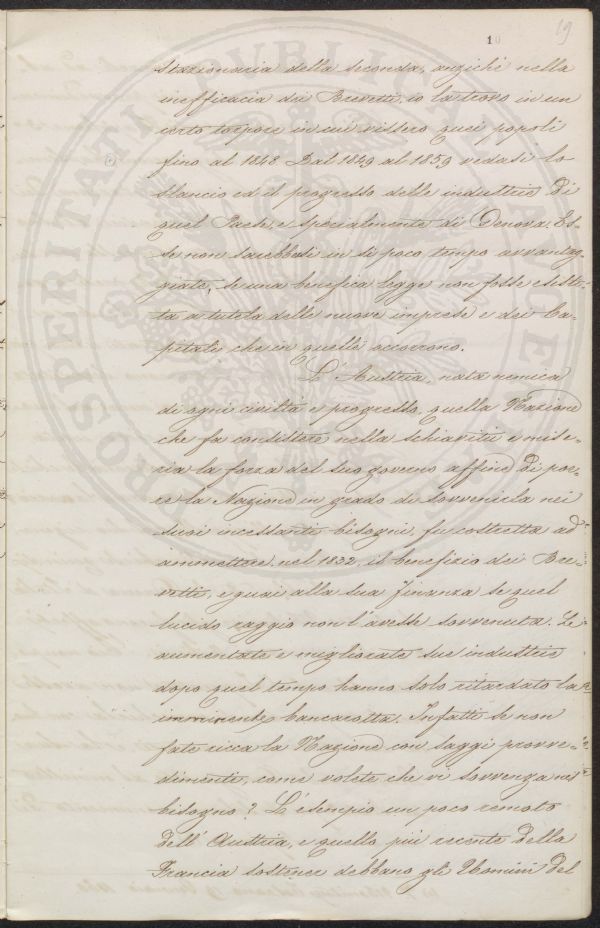 10
19
stazionaria della seconda, anzichè nella
inefficacia dei Brevetti, io la trovo in un
certo torpore in cui vissero quei popoli
fino al 1848. Dal 1849 al 1859 vedasi lo
slancio ed il progresso delle industrie di
quel Paese, e specialmente di Genova. Es-
se non sarebbesi in sì poco tempo avvantag-
giate, se una benefica legge non fosse esisti-
ta a tutela delle nuove imprese e dei Ca-
pitali che in quelle accorrono.
L'Austria, nata nemica
di ogni civiltà e progresso, quella Nazione
che fa consistere nella schiavitù e mise-
ria la forza del suo governo affine di por-
re la Nazione in grado di sovvenirla nei
suoi incessanti bisogni, fu costretta ad
ammettere, nel 1832, il benefizio dei Bre-
vetti, e guai alla sua finanza se quel
lucido raggio non l'avesse sovvenuta. Le
aumentate e migliorate sue industrie
dopo quel tempo hanno solo ritardato la
imminente bancarotta. Infatti se non
fate ricca la Nazione con saggi provve-
dimenti, come volete che vi sovvenza nel
bisogno? L'esempio un poco remoto
dell'Austria, e quello più recente della
Francia sostener debbano gli Uomini del
PROSPERITATI PUBLICAE